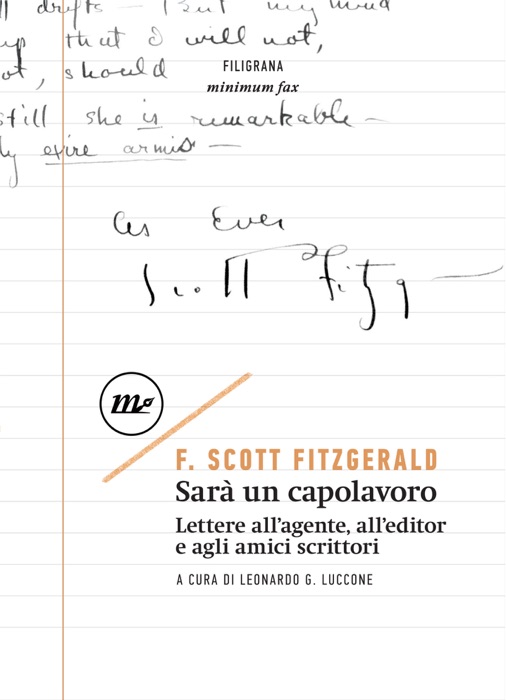 drifts — but my mind
up that I will not,
should
FILIGRANA
minimum fax
still she is remarkable —
expire armis —
As Ever
Scott Fitzg
m
F. SCOTT FITZGERALD
Sarà un capolavoro
Lettere all'agente, all'editor
e agli amici scrittori
A CURA DI LEONARDO G. LUCCONE